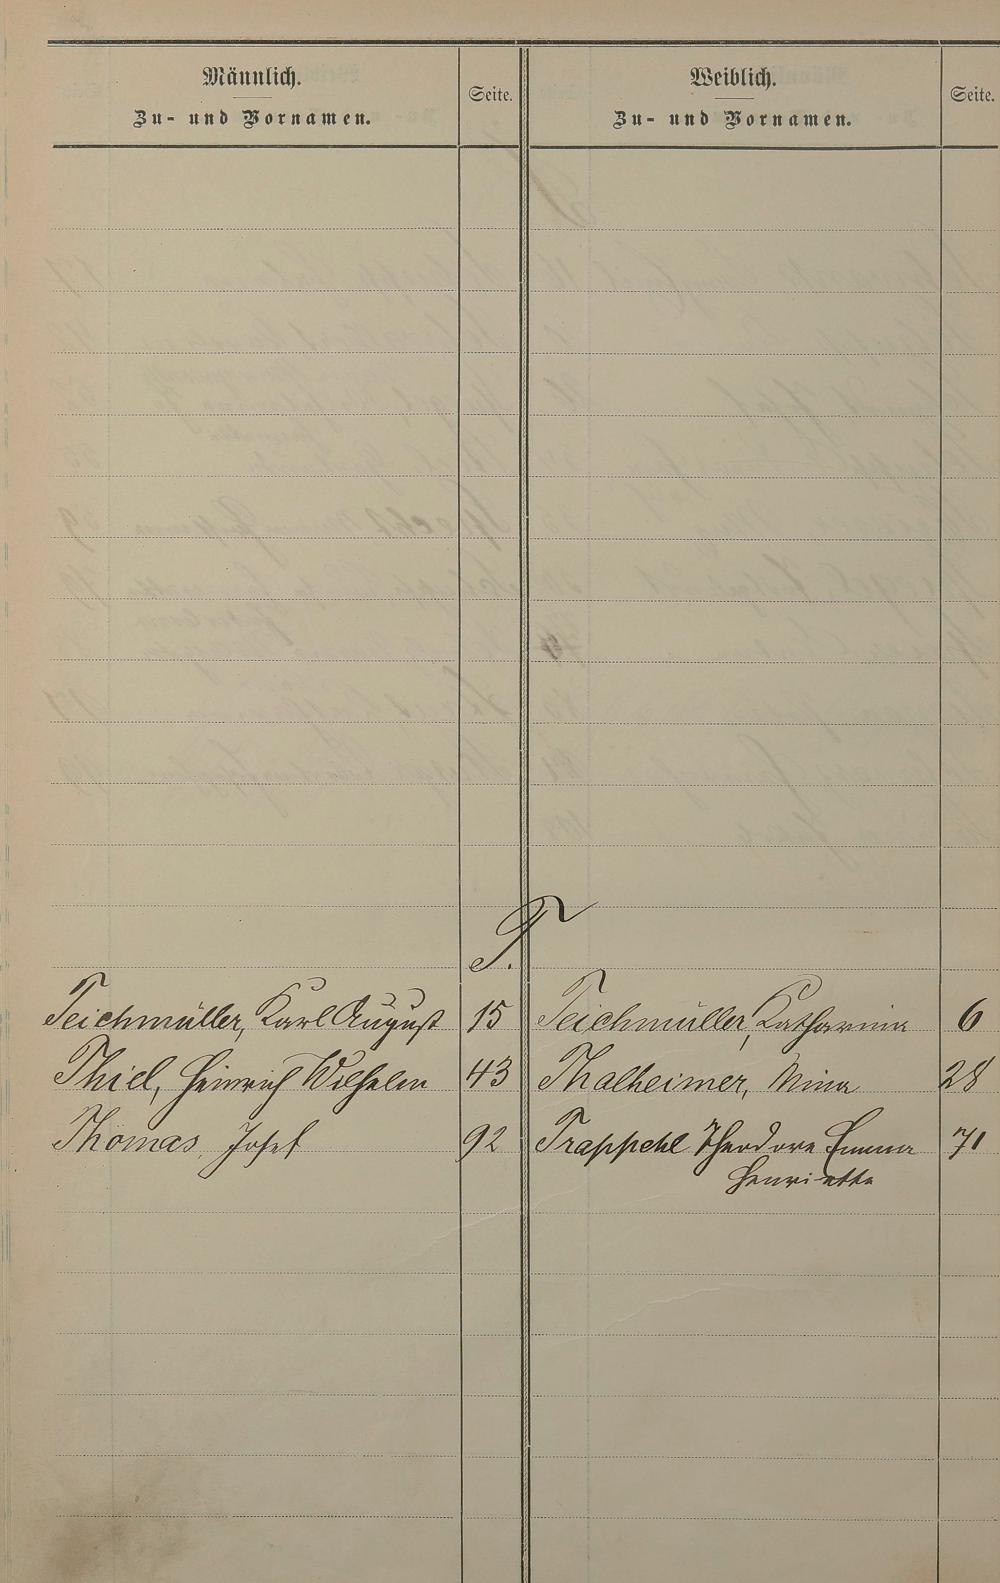 Männlich.
Zu- und Vornamen.
Seite.
Weiblich.
Zu- und Vornamen.
Seite.
T.
Teichmüller, Karl August 15 Teichmüller, Katharina 6
Thiel, Heinrich Wilhelm 43 Thalheimer, Mina 28
Thomas, Josef 92 Trappehl Theodore Emma 71
Henriette